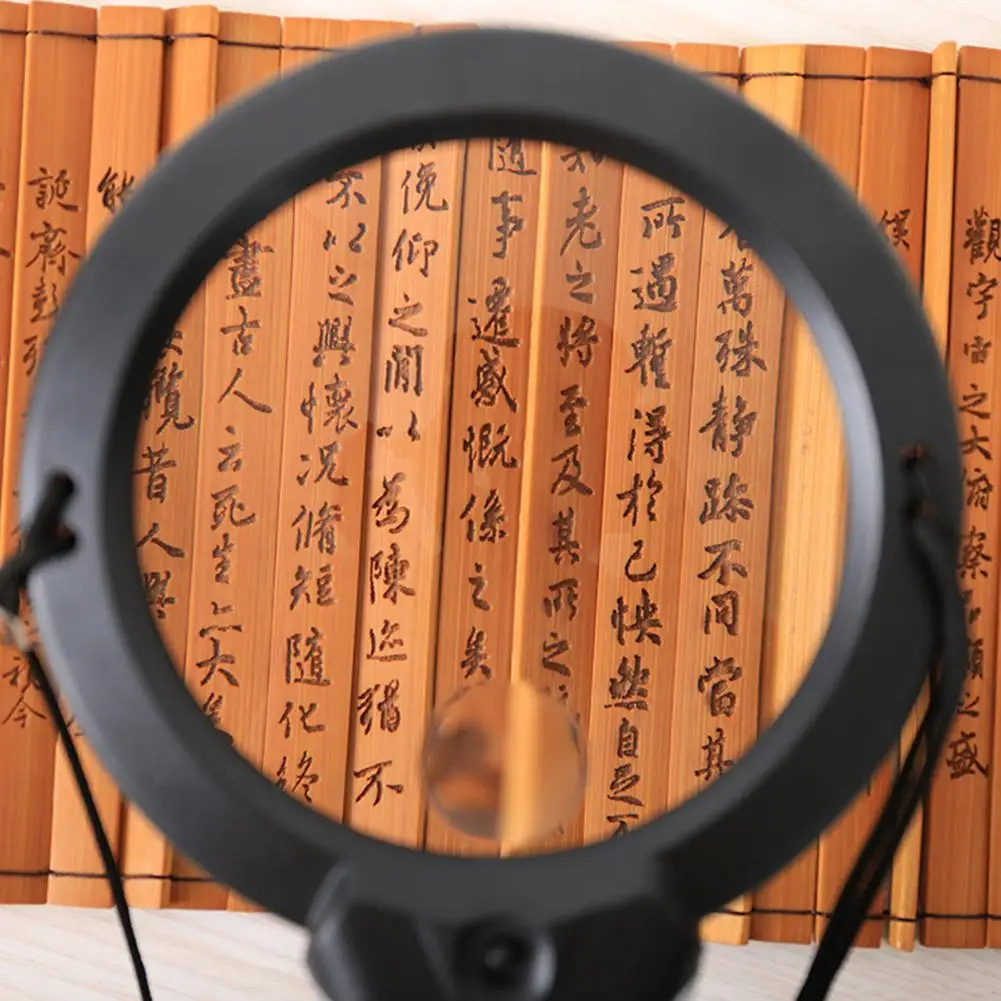 觀宇宙之大俯察 類之盛
萬殊靜躁不同當其
所遇暫得於己快然自足不
老之將至及其所之
隨事遷感慨係之矣
俛仰之間以為陳迹猶不
不以之興懷況脩短隨化終
盡古人云死生亦大矣
攬昔人興
能
誕齊彭殤 視今